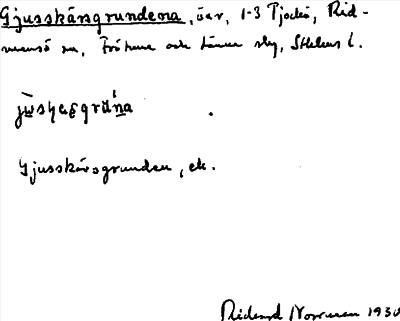 Gjusskärsgrundena, öar, 1-3 Tjockö, Rid-
mansö sn, Frötuna och Länna sky, Sthlms l.
jùsʜɐʂgrúna .
Gjusskärsgrunden, ek.
Rickard Norrman 1930